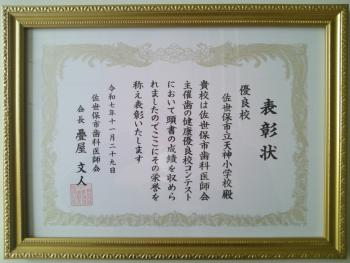 表彰状
優良校
佐世保市立天神小学校殿
貴校は佐世保市歯科医師会
主催歯の健康優良校コンテスト
において頭書の成績を収めら
れましたのでここにその栄誉を
称え表彰いたします
令和七年十一月二十九日
佐世保市歯科医師会
会長 疊屋 文人